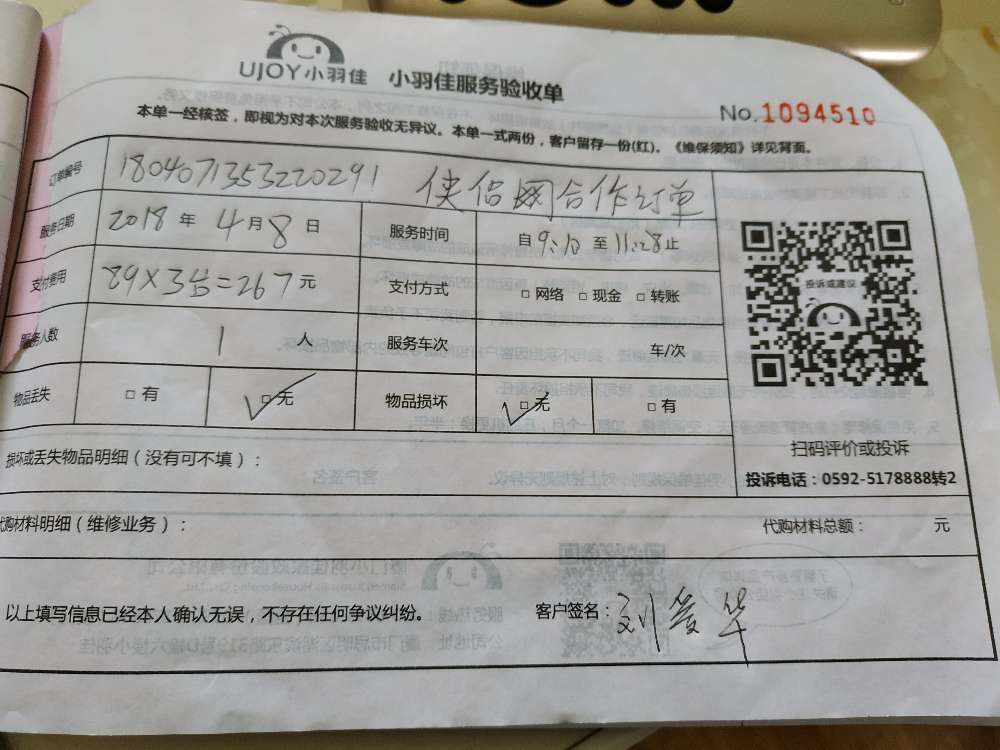 UJOY小羽佳 小羽佳服务验收单
No.1094510
本单一经核签，即视为对本次服务验收无异议。本单一式两份，客户留存一份(红)。《维保须知》详见背面。
订单编号 1804071353220291 侠侣网合作订单
服务日期 2018 年 4 月 8 日 服务时间 自9:10 至 11:28止
支付费用 89×3台=267 元 支付方式 □ 网络 □ 现金 □ 转账
服务人数 1 人 服务车次 车/次
物品丢失 □ 有 □ 无 物品损坏 □ 无 □ 有
投诉或建议
扫码评价或投诉
投诉电话：0592-5178888转2
损坏或丢失物品明细（没有可不填）：
代购材料明细（维修业务）： 代购材料总额： 元
以上填写信息已经本人确认无误，不存在任何争议纠纷。 客户签名：刘爱华